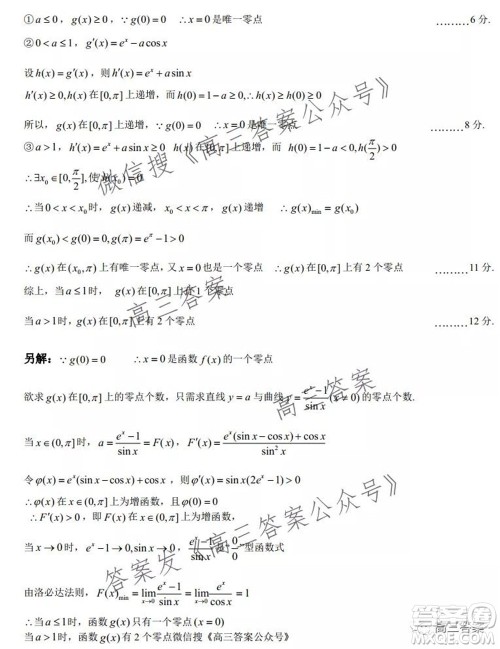 ①a≤0，g(x)≥0，∵g(0)=0 ∴x=0是唯一零点 ………6分.
②0<a≤1，g′(x)=eˣ−a cos x
设h(x)=g′(x)，则h′(x)=eˣ+a sin x
h′(x)≥0,h(x)在[0,π]上递增，而h(0)=1−a≥0,∴h(x)≥0
所以，g(x)在[0,π]上递增，∵g(0)=0 ∴x=0是唯一零点 ………8分.
③a>1，h′(x)=eˣ+a sin x≥0 h(x)在[0,π]上递增，而h(0)=1−a<0,h(π/2)>0
∴∃x₀∈[0,π/2],使h(x₀)=0
∴当0<x<x₀时，g(x)递减，x₀<x<π，g(x)递增 ∴g(x)min=g(x₀)
而g(x₀)<g(0)=0,g(π)=e^π−1>0
∴g(x)在(x₀,π)上有唯一零点，又x=0也是一个零点 ∴g(x)在[0,π]上有2个零点 ………11分.
综上，当a≤1时，g(x)在[0,π]上有1个零点
当a>1时，g(x)在[0,π]上有2个零点 ………12分.
另解：∵g(0)=0 ∴x=0是函数f(x)的一个零点
欲求g(x)在[0,π]上的零点个数，只需求直线y=a与曲线y=(eˣ−1)/sin x(x≠0)的零点个数.
当x∈(0,π]时，a=(eˣ−1)/sin x=F(x)，F′(x)=(eˣ(sin x−cos x)+cos x)/sin²x
令φ(x)=eˣ(sin x−cos x)+cos x，则φ′(x)=sin x(2eˣ−1)>0
∴φ(x)在x∈(0,π]上为增函数，且φ(0)=0
∴F′(x)>0，即F(x)在x∈(0,π]上为增函数，
当x→0时，eˣ−1→0,sin x→0，(eˣ−1)/sin x是0/0型函数式
由洛必达法则，F(x)min=lim x→0 (eˣ−1)/sin x=lim x→0 eˣ/cos x=1
∴当a≤1时，函数f(x)只有一个零点(x=0)
当a>1时，函数有2个零点微信搜《高三答案公众号》
微信搜《高三答案公众号》
高三答案
高三答案
答案发《高三答案公众号》
高三答案